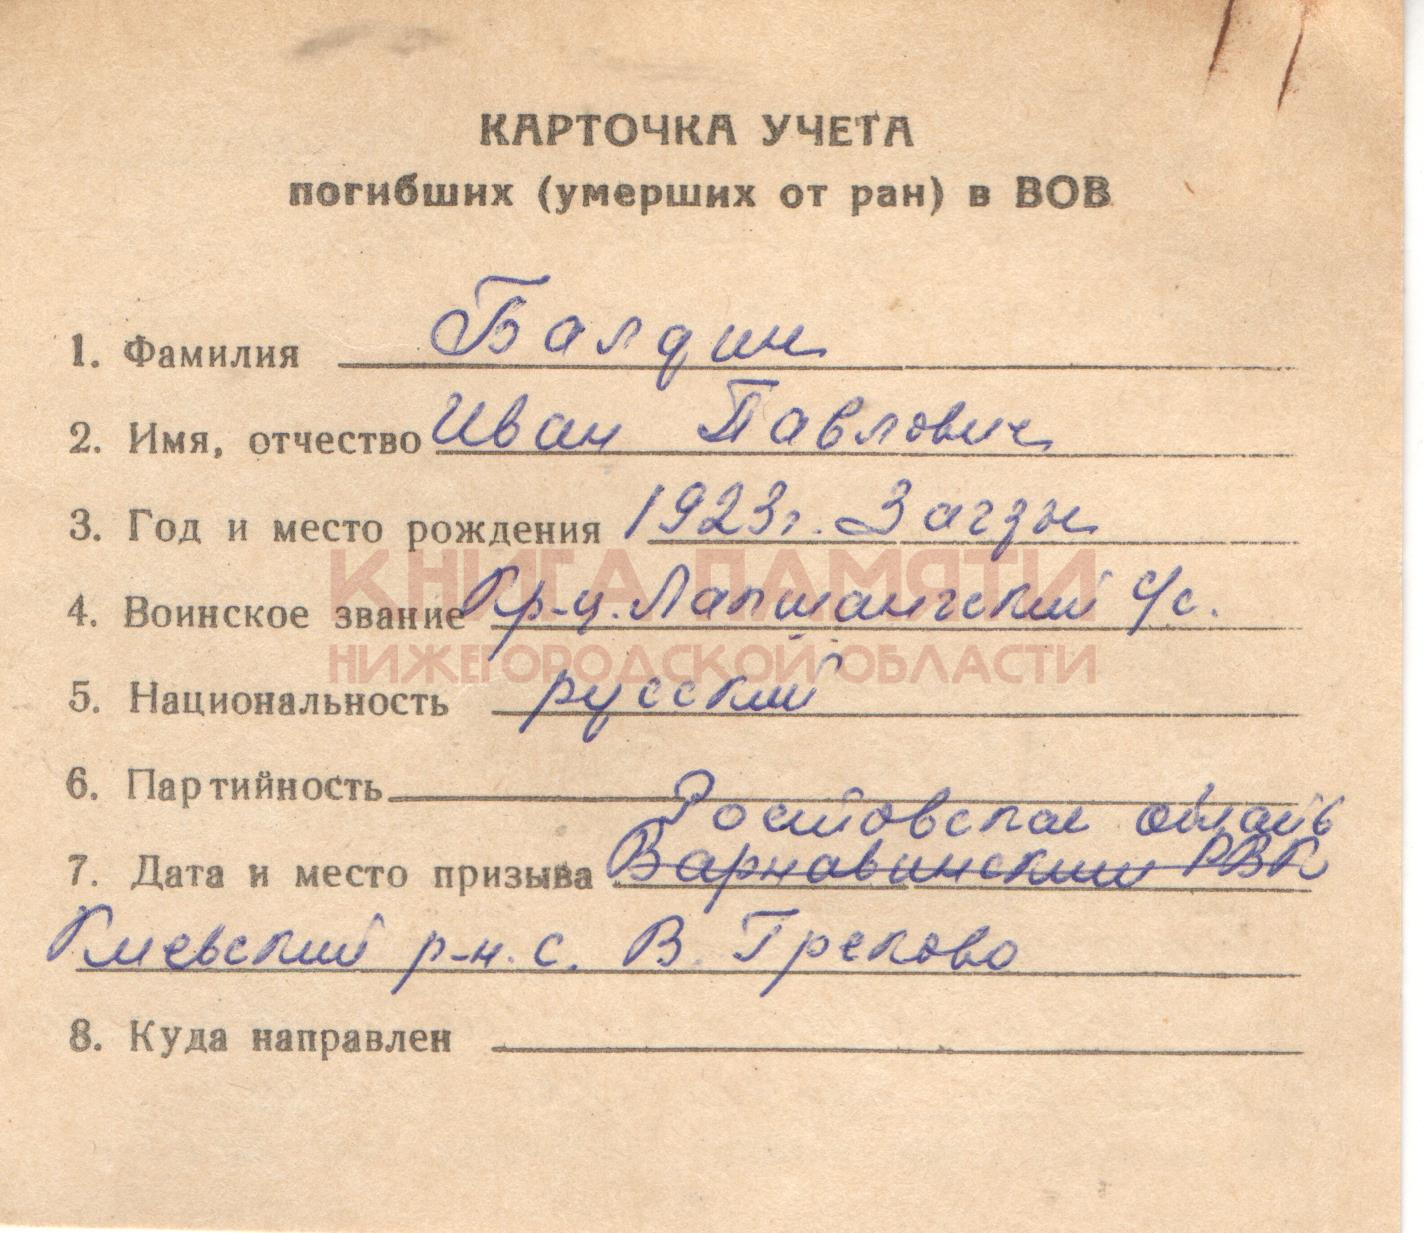 КАРТОЧКА УЧЕТА
погибших (умерших от ран) в ВОВ
1. Фамилия Балдин
2. Имя, отчество Иван Павлович
3. Год и место рождения 1923г. Загзы
4. Воинское звание Кр-ц. Лапшангский с/с.
КНИГА ПАМЯТИ
НИЖЕГОРОДСКОЙ ОБЛАСТИ
5. Национальность русский
6. Партийность
Ростовская область
7. Дата и место призыва Варнавинский РВК
Киевский р-н. с. В. Греково
8. Куда направлен